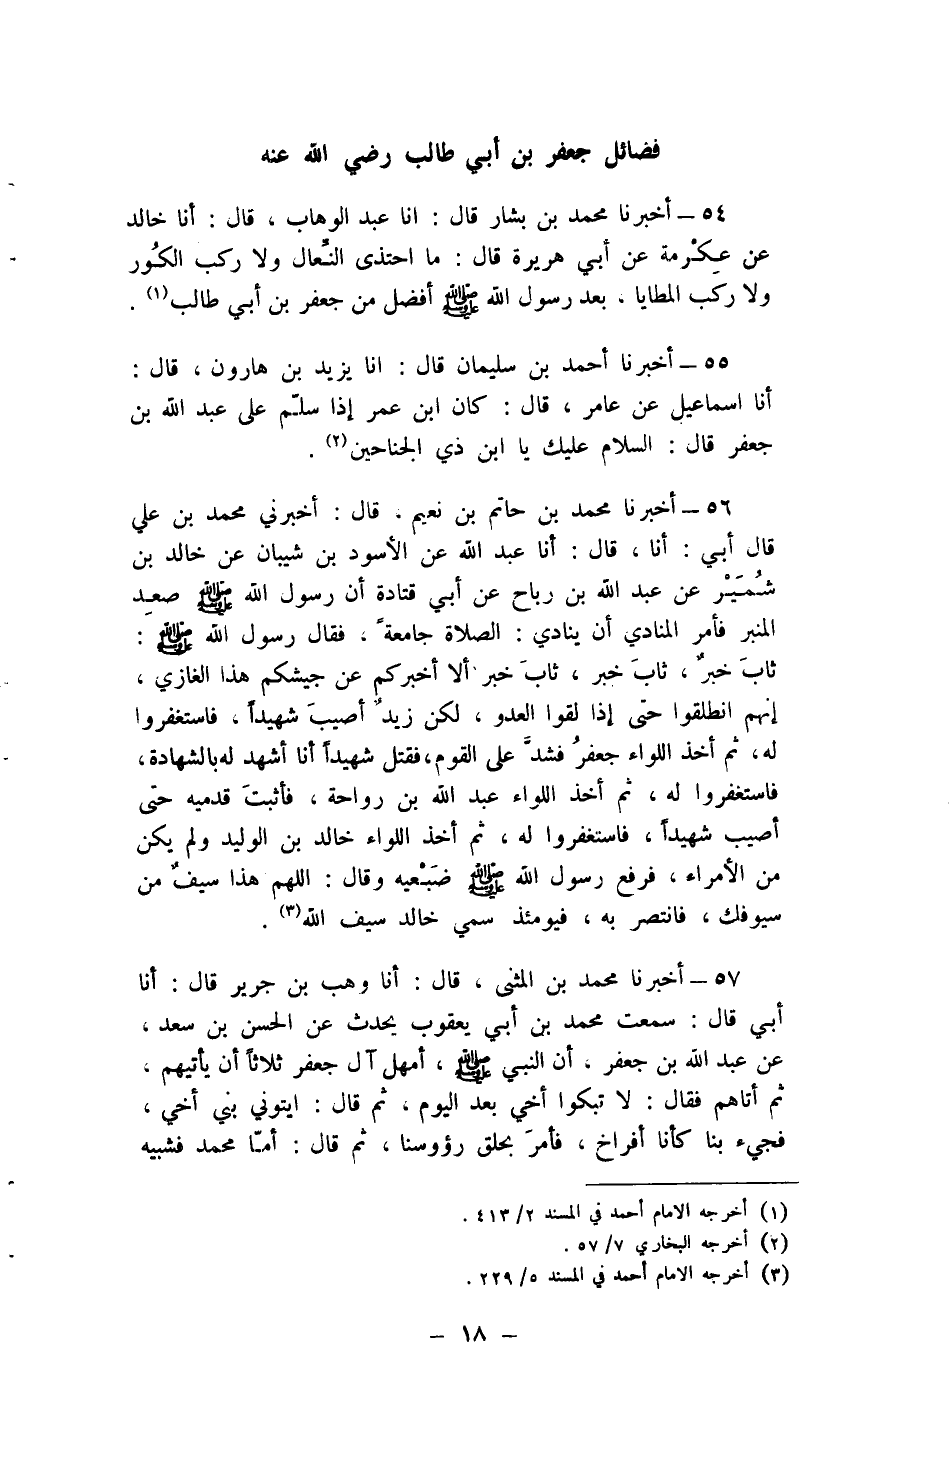 فضائل جعفر بن أبي طالب رضي الله عنه
٥٤ ــ أخبرنا محمد بن بشار قال : انا عبد الوهاب ، قال : أنا خالد
عن عِكْرمة عن أبي هريرة قال : ما احتذى النِّعال ولا ركب الكُور
ولا ركب المطايا ، بعد رسول الله ﷺ أفضل من جعفر بن أبي طالب(١) .
٥٥ ــ أخبرنا أحمد بن سليمان قال : انا يزيد بن هارون ، قال :
أنا اسماعيل عن عامر ، قال : كان ابن عمر إذا سلّم على عبد الله بن
جعفر قال : السلام عليك يا ابن ذي الجناحين(٢) .
٥٦ ــ أخبرنا محمد بن حاتم بن نعيم ، قال : أخبرني محمد بن علي
قال أبي : أنا ، قال : أنا عبد الله عن الأسود بن شيبان عن خالد بن
شُمَيْر عن عبد الله بن رباح عن أبي قتادة أن رسول الله ﷺ صعِد
المنبر فأمر المنادي أن ينادي : الصلاة جامعةً ، فقال رسول الله ﷺ :
ثابَ خبرٌ ، ثابَ خبر ، ثابَ خبر ألا أخبركم عن جيشكم هذا الغازي ،
إنهم انطلقوا حتى إذا لقوا العدو ، لكن زيدٌ أصيبَ شهيداً ، فاستغفروا
له ، ثم أخذ اللواء جعفرُ فشدَّ على القوم ، فقتل شهيداً أنا أشهد له بالشهادة ،
فاستغفروا له ، ثم أخذ اللواء عبد الله بن رواحة ، فأثبتَ قدميه حتى
أصيب شهيداً ، فاستغفروا له ، ثم أخذ اللواء خالد بن الوليد ولم يكن
من الأمراء ، فرفع رسول الله ﷺ ضَبْعيه وقال : اللهم هذا سيفٌ من
سيوفك ، فانتصر به ، فيومئذ سمي خالد سيف الله(٣) .
٥٧ ــ أخبرنا محمد بن المثنى ، قال : أنا وهب بن جرير قال : أنا
أبي قال : سمعت محمد بن أبي يعقوب يحدث عن الحسن بن سعد ،
عن عبد الله بن جعفر ، أن النبي ﷺ ، أمهل آل جعفر ثلاثاً أن يأتيهم ،
ثم أتاهم فقال : لا تبكوا أخي بعد اليوم ، ثم قال : ايتوني بني أخي ،
فجيء بنا كأنا أفراخ ، فأمرَ بحلق رؤوسنا ، ثم قال : أمّا محمد فشبيه
(١) أخرجه الامام أحمد في المسند ٢/ ٤١٣ .
(٢) أخرجه البخاري ٧/ ٥٧ .
(٣) أخرجه الامام أحمد في المسند ٥/ ٢٢٩ .
– ١٨ –